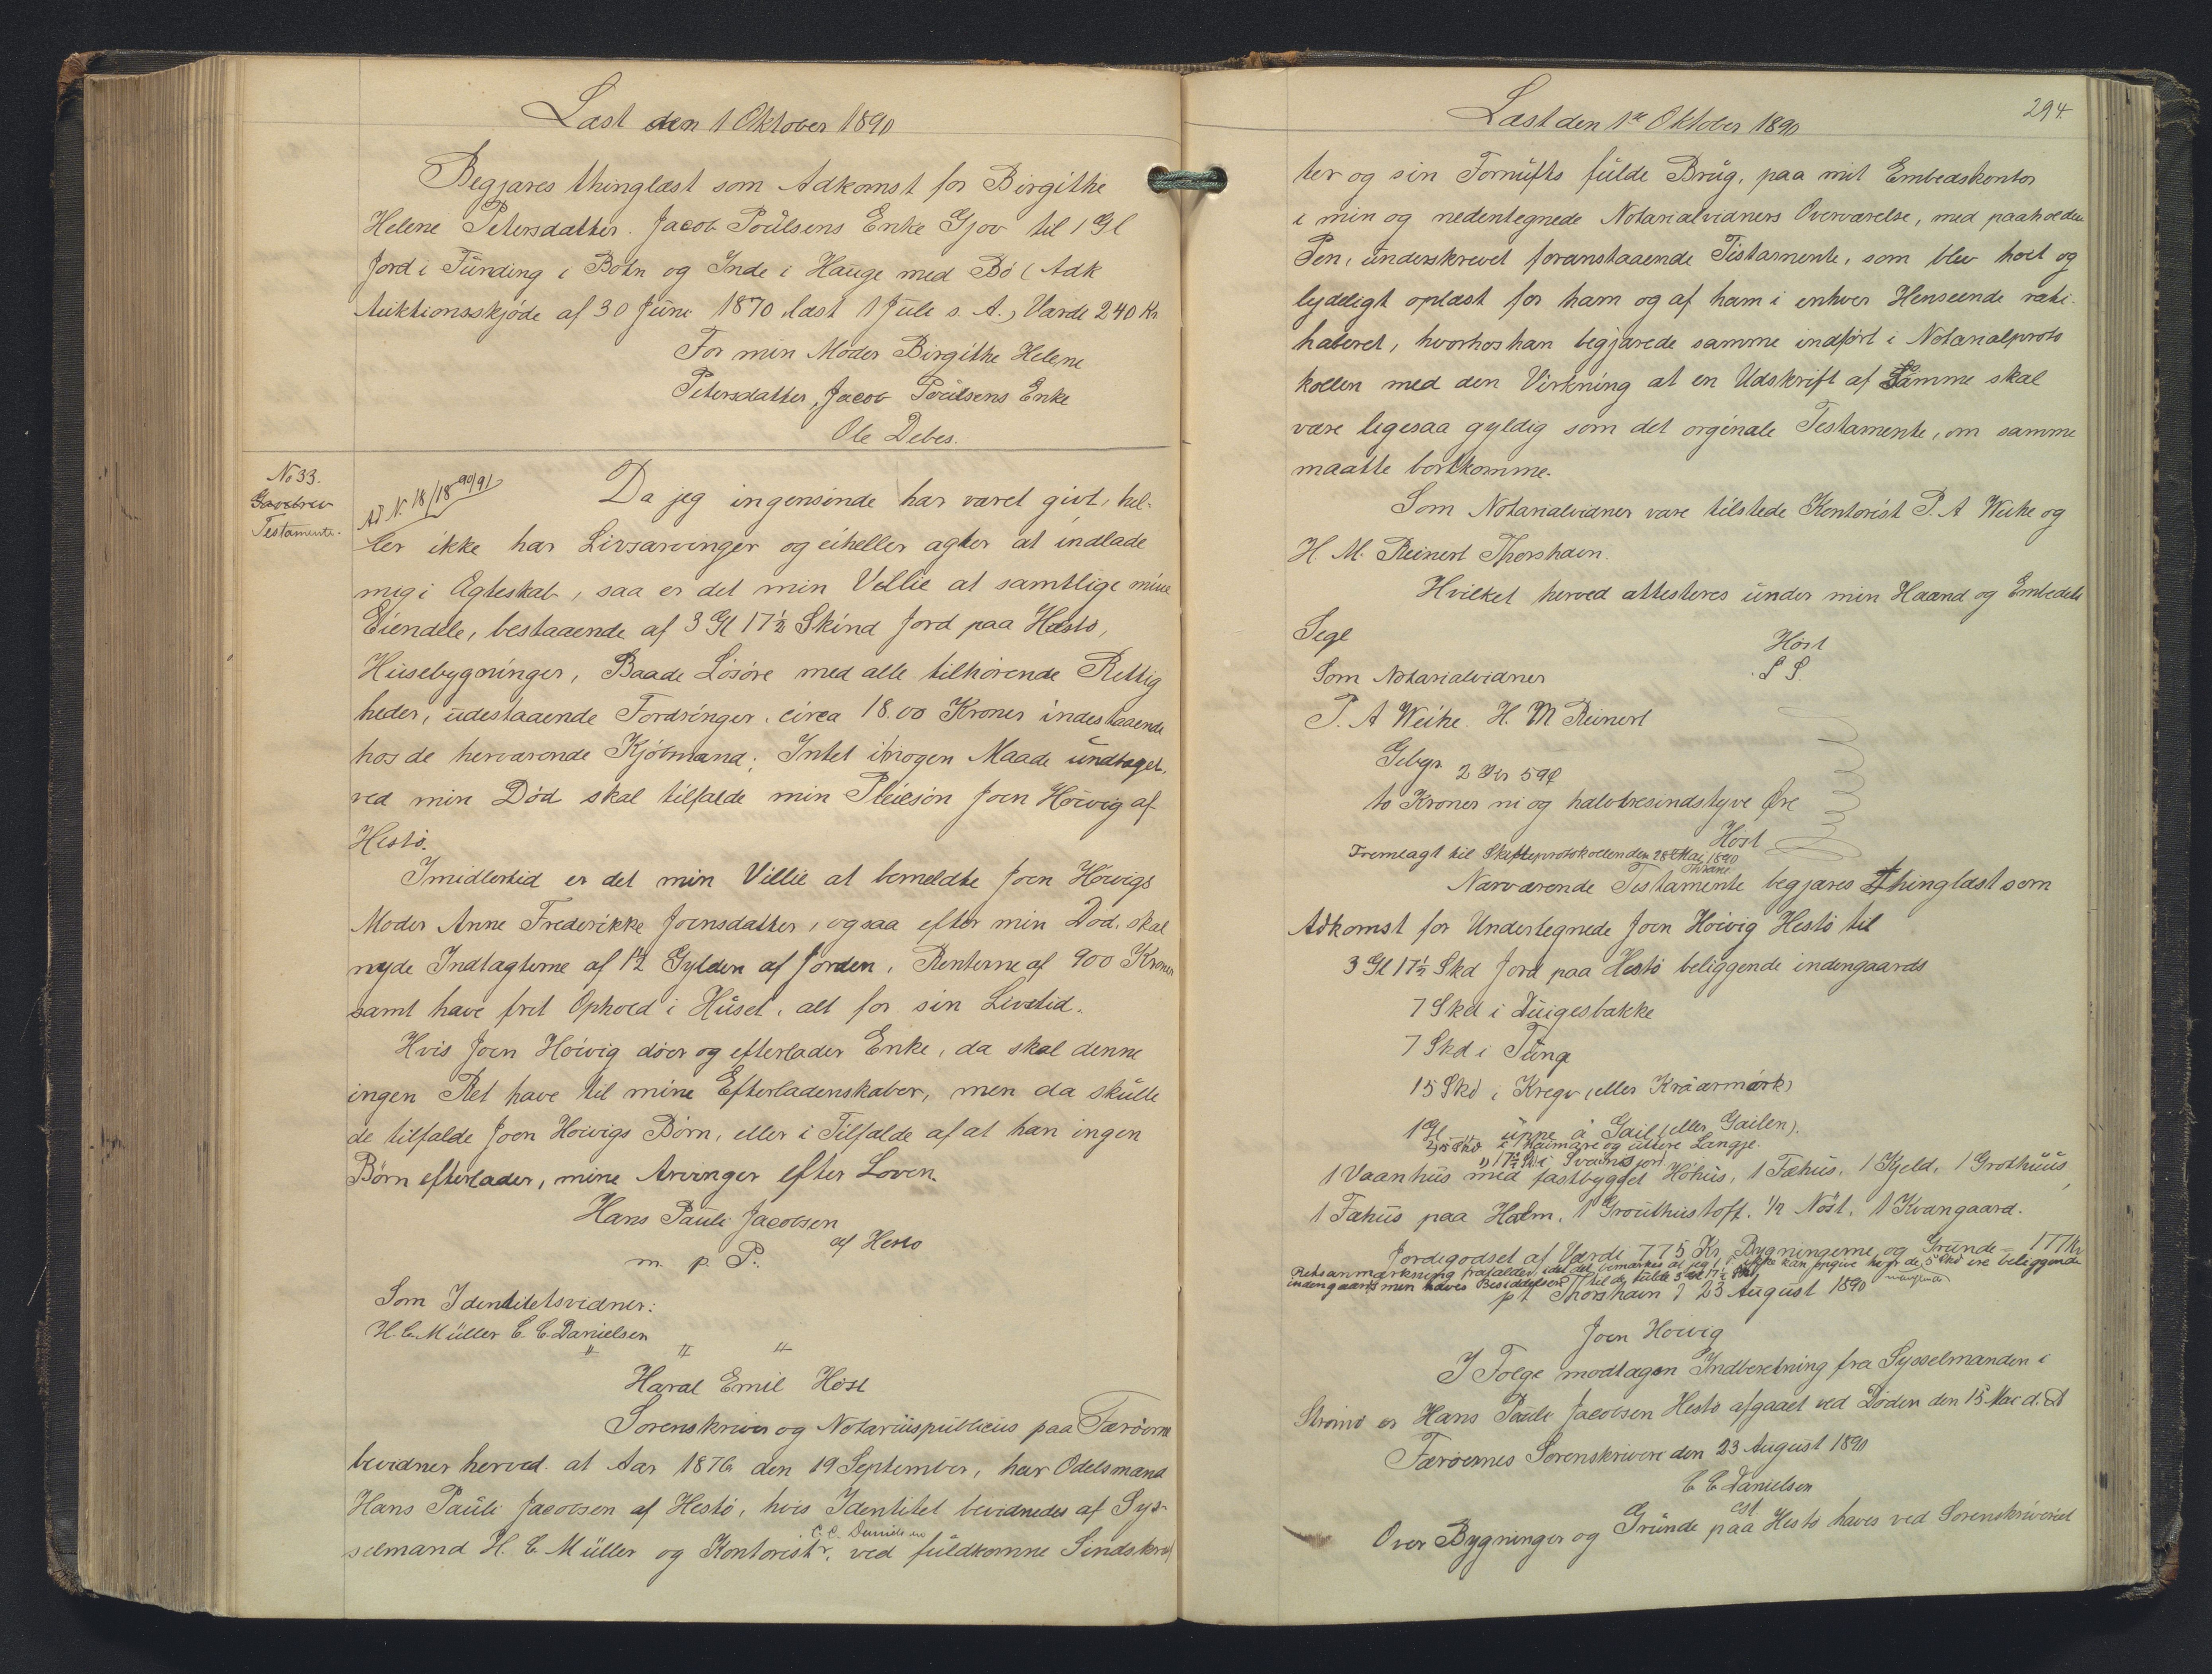 Læst den 1 Oktober 1890
Begjæres thinglæst som Adkomst for Birgithe
Helene Petersdatter. Jacob Poulsens Enke Gjov til 1 Gl
Jord i Funding i Botn og Inde i Hauge med Bö (Adk
Auktionsskjöde af 30 Juni 1870 læst 1 Juli s. A., Værdi 240 Kr
For min Moder Birgithe Helene
Petersdatter, Jacob Poulsens Enke
Ole Debes.
No 33.
Gavebrev
Testamente.
Ad N. 18/18 90/91
Da jeg ingensinde har været givt, hel-
ler ikke har Livsarvinger og eiheller agter at indlade
mig i Ægteskab, saa er det min Villie at samtlige mine
Eiendele, bestaaende af 3 Gl 17½ Skind Jord paa Hestö,
Husebygninger, Baade Lösöre med alle tilhörende Rettig
heder, udestaaende Fordringer, circa 18.00 Kroner indestaaende
hos de herværende Kjöbmænd; Intet i nogen Maade undtaget,
ved min Död skal tilfalde min Pleiesön Joen Höivig af
Hestö.
Imidlertid er det min Villie at bemeldte Joen Höivigs
Moder Anne Frederikke Joensdatter, ogsaa efter min Död, skal
nyde Indtægterne af 1½ Gylden af Jorden, Renterne af 900 Kroner
samt have frit Ophold i Huset, alt for sin Livstid.
Hvis Joen Höivig döer og efterlader Enke, da skal denne
ingen Ret have til mine Efterladenskaber, men da skulle
de tilfalde Joen Höivigs Börn, eller i Tilfælde af at han ingen
Börn efterlader, mine Arvinger efter Loven.
Hans Pauli Jacobsen
af Hestö
m. p. P.
Som Identitetsvidner:
H. C. Müller C. C. Danielsen
" " "
Haral Emil Höst
Sorenskriver og Notariuspublicus paa Færöerne
bevidner herved at Aar 1876 den 19 September, har Odelsmand
Hans Pauli Jacobsen af Hestö, hvis Identitet bevidnedes af Sys-
C. C. Danielsen
selmand H. C. Müller og Kontorist, ved fuldkomne Sindskræf
Læst den 1ste Oktober 1890
294.
ter og sin Fornufts fulde Brug, paa mit Embedskontor
i min og nedentegnede Notarialvidners Overværelse, med paaholden
Pen, underskrevet foranstaaende Testamente, som blev höit og
lydeligt oplæst for ham og af ham i enhver Henseende rati-
haberet, hvorhos han begjærede samme indfört i Notarialproto
kollen med den Virkning at en Udskrift af Samme skal
være ligesaa gyldig som det orginale Testamente, om samme
maatte bortkomme.
Som Notarialvidner vare tilstede Kontorist P. A Weihe og
H. M. Reinert Thorshavn.
Hvilket herved attesteres under min Haand og Embeds
Segl
Höst
Som Notarialvidner
L S.
P. A Weihe. H. M Reinert
Gebyr 2 Kr 59 Ø
to Kroner ni og halvtresindstyve Øre
Höst
Fremlagt til Skifteprotokollen den 28 Mai 1890
Thrane
Nærværende Testamente begjæres thinglæst som
Adkomst for Undertegnede Joen Höivig Hestö til
3 Gl 17½ Skd Jord paa Hestö beliggende indengaards
7 Skd i Duigesbakke
7 Skd i Tunge
15 Skd i Kregv (eller Kráarmörk)
1 Gl uppe á Gail (eller Gailen).
2) 15 Skd i Haimare og uttere Langje.
1) 17½ Sk i Svainsjord
1 Vaanhus med fastbygget Höhus, 1 Fæhus, 1 Kjeld, 1 Grothuus,
1 Fæhus paa Halm, 1 Grouthustoft. ½ Nöst, 1 Kvangaard.
Jordegodset af Værdi 775 Kr, Bygningerne og Grunde - 177 Kr
Retsanmærkning frafalder, idet det bemærkes at jeg ikke kan opgive hvor de 5 Skd ere beliggende
indengaards men haves Besiddelsen til de fulde 3 Gl 17½ Skd
pt Thorshavn d 23 August 1890
Joen Höivig
I Fölge modtagen Indberetning fra Sysselmanden i
Strömö er Hans Pauli Jacobsen Hestö afgaaet ved Döden den 15 Mai d. A
Færöernes Sorenskriveri den 23 August 1890
C C Danielsen
cst
Over Bygninger og Grunde paa Hestö haves ved Sorenskriveriet